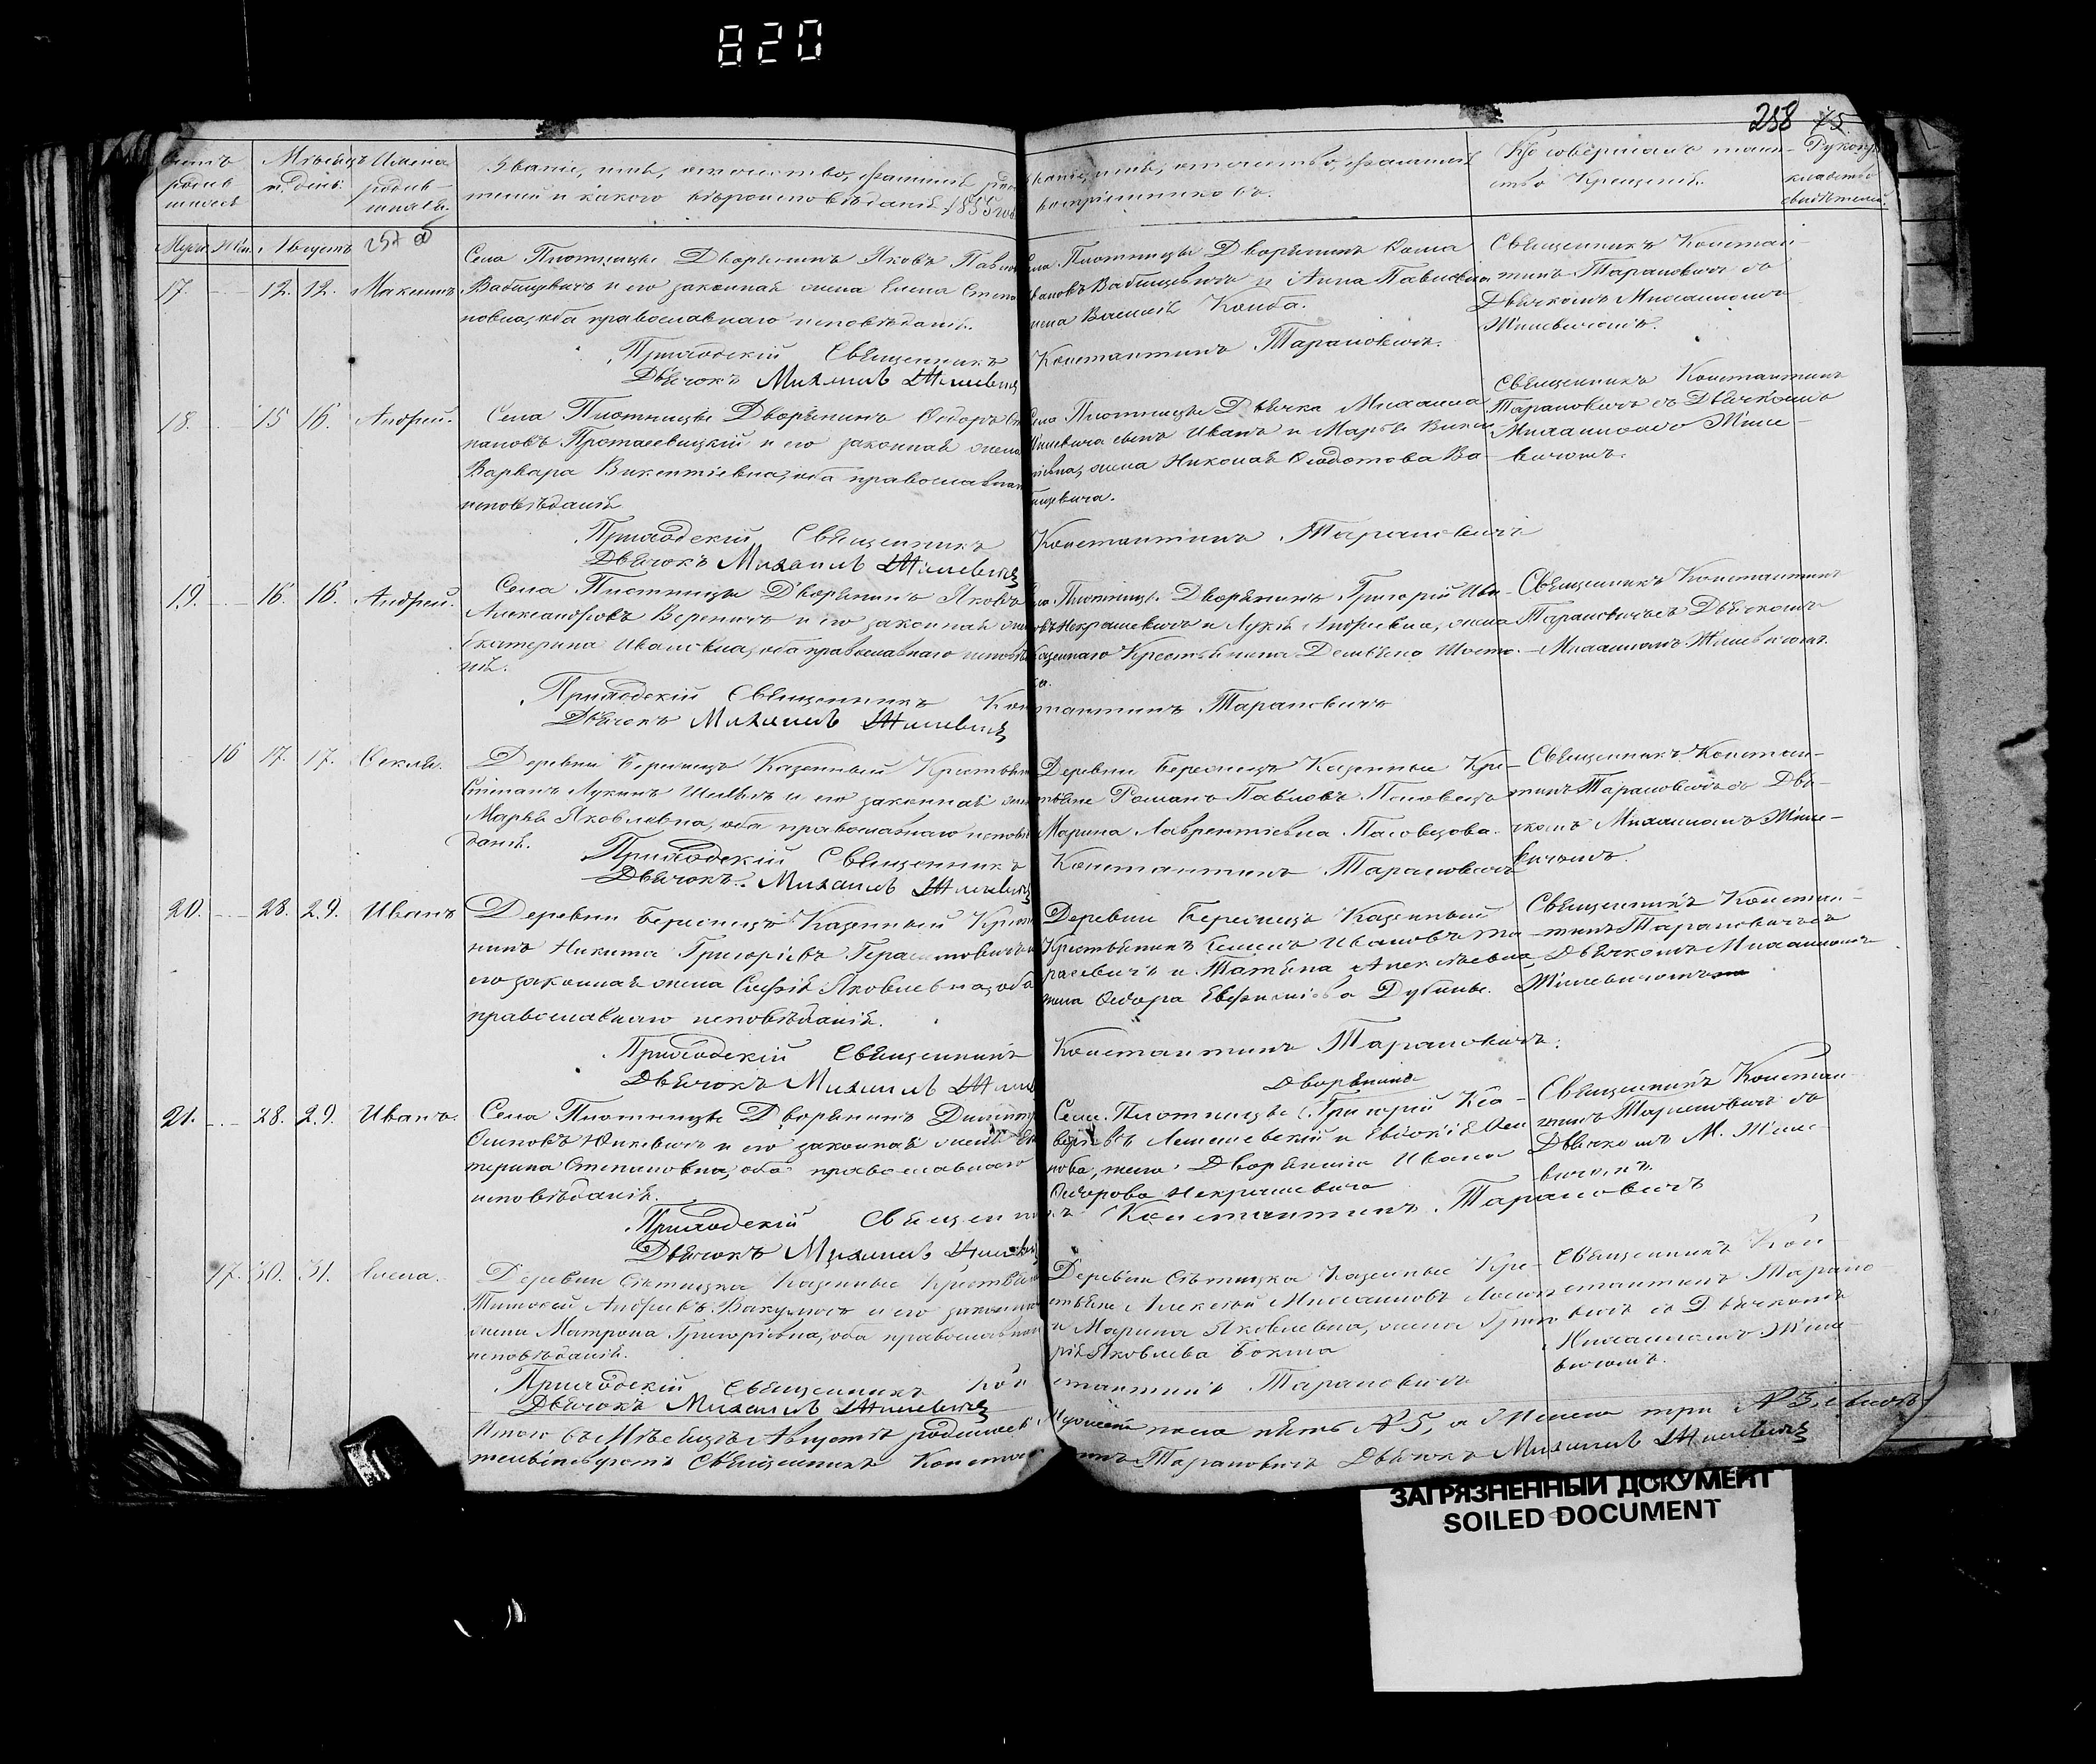 820
258 75
Счетъ родив шихся
Мѣсяцъ и день:
Имена родив- шихся.
Званіе, имя, отчество, фамилія роди
телей и какого вѣроисповѣданія 1855 года
Званіе, имя, отчество, фамилія
воспріемниковъ.
Кто совершалъ таин-
ство Крещенія.
Рукопри
кладство
свидѣтелей.
Муж. Жен. Августъ
17. 12. 12. Максимъ.
Села Плотницы Дворянинъ Яковъ Павло
Вабищевичъ и его законная жена Елена Степа
новна, оба православнаго исповѣданія.
Приходскій Священникъ
Дьячокъ Михаилъ Жилевичъ
Села Плотницы Дворянинъ Фома
Ивановъ Вабищевичъ и Анна Павловна
жена Василія Коиба.
Константинъ Тарановичъ.
Священникъ Констан-
тинъ Тарановичъ съ
Дьячкомъ Михаиломъ
Жилевичомъ.
18. 15 16. Андрей.
Села Плотницы Дворянинъ Ѳедоръ Сте
пановъ Протасевицкій и его законная жена
Варвара Викентіевна, оба православнаго
исповѣданія
Приходскій Священникъ
Дьячокъ Михаилъ Жилевичъ
Села Плотницы Дьячка Михаила
Жилевича сынъ Иванъ и Марья Викен
тіевна, жена Николая Ѳедотова Ва-
бищевича.
Константинъ Тарановичъ
Священникъ Константинъ
Тарановичъ съ Дьячкомъ
Михаиломъ Жиле-
вичомъ.
19. 16. 16. Андрей.
Села Плотницы Дворянинъ Яковъ
Александровъ Вереничъ и его законная жена
Екатерина Ивановна, оба православнаго исповѣда
нія.
Приходскій Священникъ Кон
Дьячокъ Михаилъ Жилевичъ
Села Плотницы Дворянинъ Григорій Ива-
новъ Некрашевичъ и Лукія Андреевна, жена
Казеннаго Крестьянина Демьяна
стантинъ Тарановичъ
Священникъ Константинъ
Тарановичъ съ Дьячкомъ
Михаиломъ Жилевичомъ.
16 17. 17. Ѳекла.
Деревни Бересницъ Казенный Крестьяни
Степанъ Лукинъ и его законная жена
Марья Яковлевна, оба православнаго исповѣ
данія.
Приходскій Священникъ
Дьячокъ Михаилъ Жилевичъ
Деревни Бересницъ Казенные Кре-
стьяне Романъ Павловъ
Марина Лаврентіевна
Константинъ Тарановичъ
Священникъ Констан-
тинъ Тарановичъ съ Дья-
чкомъ Михаиломъ Жиле-
вичомъ.
20. 28. 29. Иванъ
Деревни Бересницъ Казенный Кресть
нинъ Никита Григорьевъ Герасимовичъ и
его законная жена Софія Яковлевна, оба
православнаго исповѣданія.
Приходскій Священникъ
Дьячокъ Михаилъ Жиле
Деревни Бересницъ Казенный
Крестьянинъ Семенъ Ивановъ Та-
расевичъ и Татьяна Алексѣевна,
жена Ѳедора Евфимова
Константинъ Тарановичъ.
Священникъ Констан-
тинъ Тарановичъ съ
Дьячкомъ Михаиломъ
Жилевичомъ
21. 28. 29. Иванъ.
Села Плотницы Дворянинъ Димитр
Осиповъ и его законная жена Ека
терина Степановна, оба православнаго
исповѣданія.
Приходскій Священни
Дьячокъ Михаилъ Жилевичъ
Дворянинъ
Села Плотницы Григорій
и Евдокія
нова, жена Дворянина Ивана
Ѳедорова Некрашевича
къ Константинъ Тарановичъ
Священникъ Констан-
тинъ Тарановичъ съ
Дьячкомъ М. Жиле-
вичомъ.
17. 30. 31. Елена.
Деревни Сѣтицка Казенные Крестьяне
Тимофей Андреевъ Вакуличъ и его законная
жена Матрона Григорьевна, оба православнаго
исповѣданія.
Приходскій Священникъ Кон
Дьячокъ Михаилъ Жилевичъ
Деревни Сѣтицка Казенные Кре-
стьяне Алексѣй Михаиловъ
и Марина Яковлевна, жена Григо
рія Яковлева
стантинъ Тарановичъ
Священникъ Кон
стантинъ Тарано
вичъ съ Дьячкомъ
Михаиломъ Жиле-
вичомъ.
Итого въ Мѣсяцѣ Августѣ родилось Мужеска пола пять № 5, а Женска три № 3, въ чемъ
свидѣтельствуютъ Священникъ Константинъ Тарановичъ Дьячокъ Михаилъ Жилевичъ
ЗАГРЯЗНЕННЫЙ ДОКУМЕНТ
SOILED DOCUMENT